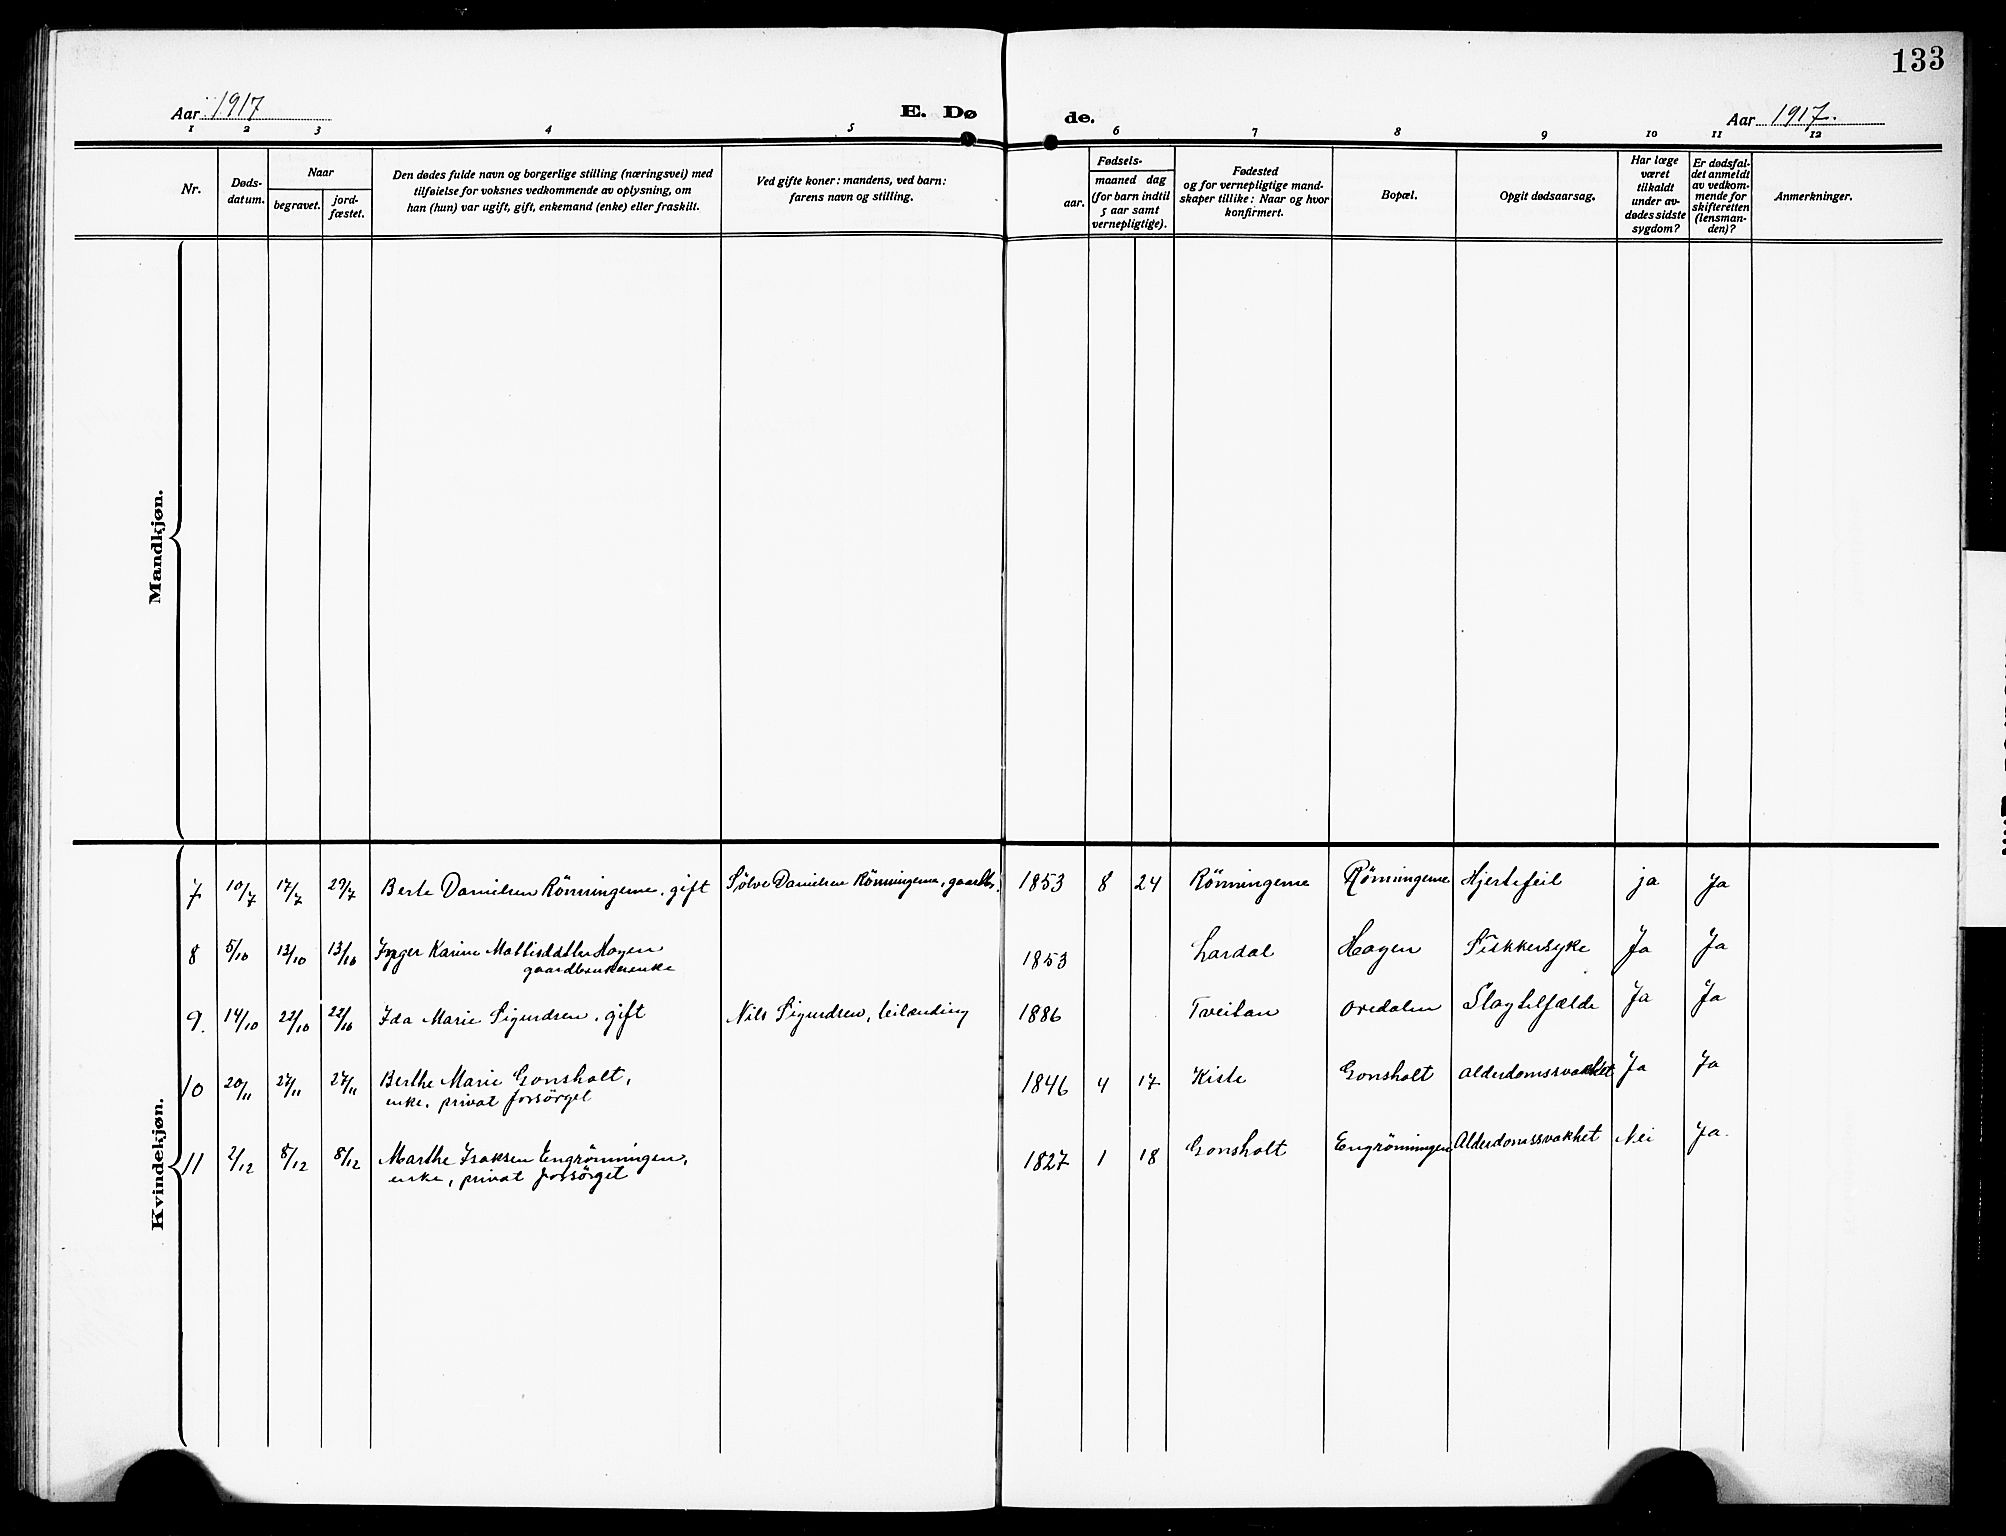 133
Aar 1917
E. Dø
de.
Aar 1917.
1 2 3 4 5 6 7 8 9 10 11 12
Nr.
Døds-
datum.
Naar
begravet.
jord-
fæstet.
Den dødes fulde navn og borgerlige stilling (næringsvei) med
tilføielse for voksnes vedkommende av oplysning, om
han (hun) var ugift, gift, enkemand (enke) eller fraskilt.
Ved gifte koner: mandens, ved barn:
farens navn og stilling.
Fødsels-
aar.
maaned dag
(for barn indtil
5 aar samt
vernepligtige).
Fødested
og for vernepligtige mand-
skaper tillike: Naar og hvor
konfirmert.
Bopæl.
Opgit dødsaarsag.
Har læge
været
tilkaldt
under av-
dødes sidste
sygdom?
Er dødsfal-
det anmeldt
av vedkom-
mende for
skifteretten
(lensman-
den)?
Anmerkninger.
Mandkjøn.
Kvindekjøn.
7 10/7 17/7 29/7 Berte Danielsen Rönningerne, gift Sölve Danielsen Rönningerne, gaardbr. 1853 8 24 Rönningerne Rönningerne Hjertefeil ja Ja
8 5/10 13/10 13/10 Inger Karine Mattisdatter Hagen
gaardbrukerenke 1853 Lardal Hagen Sukkersyke Ja Ja
9. 14/10 22/10 22/10 Ida Marie Sigurdsen, gift Nils Sigurdsen, leilænding 1886 Tveitan Oredalen Slagtilfælde Ja Ja
10 20/11 27/11 27/11 Berthe Marie Gonsholt,
enke, privat forsörget 1846 4 17 Kiste Gonsholt Alderdomssvakhet Ja Ja
11 2/12 8/12 8/12 Marthe Isaksen Engrönningen,
enke, privat forsörget 1827 1 18 Gonsholt Engrönningen Alderdomssvakhet Nei Ja.